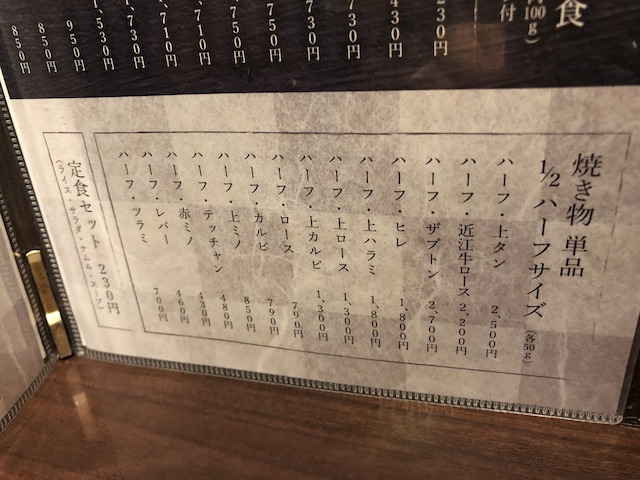 食
100g)
付
230円
430円
730円
730円
750円
750円
1,710円
1,710円
1,730円
1,530円
950円
850円
850円
焼き物 単品
1/2 ハーフサイズ (各50g)
ハーフ・上タン 2,500円
ハーフ・近江牛ロース 2,200円
ハーフ・ザブトン 2,700円
ハーフ・ヒレ 1,800円
ハーフ・上ハラミ 1,800円
ハーフ・上ロース 1,300円
ハーフ・上カルビ 1,300円
ハーフ・ロース 790円
ハーフ・カルビ 790円
ハーフ・上ミノ 850円
ハーフ・テッチャン 480円
ハーフ・赤ミノ 430円
ハーフ・レバー 460円
ハーフ・ツラミ 700円
定食セット 230円
(ライス・サラダ・ナムル・スープ)